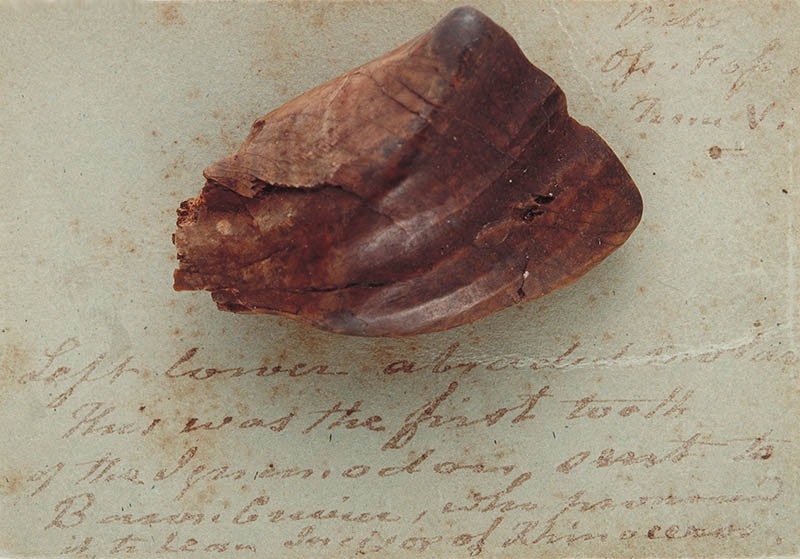 Vide
Oss. Foss
Tom V.
Left lower abraded molar
This was the first tooth
of the Iguanodon sent to
Baron Cuvier, who pronounced
it to be an Incisor of Rhinoceros.